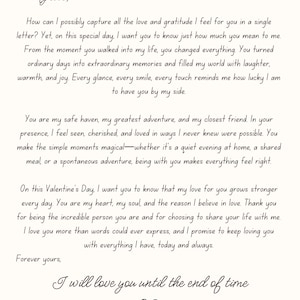 How can I possibly capture all the love and gratitude I feel for you in a single
letter? Yet, on this special day, I want you to know just how much you mean to me.
From the moment you walked into my life, you changed everything. You turned
ordinary days into extraordinary memories and filled my world with laughter,
warmth, and joy. Every glance, every smile, every touch reminds me how lucky I am
to have you by my side.
You are my safe haven, my greatest adventure, and my closest friend. In your
presence, I feel seen, cherished, and loved in ways I never knew were possible. You
make the simple moments magical—whether it's a quiet evening at home, a shared
meal, or a spontaneous adventure, being with you makes everything feel right.
On this Valentine's Day, I want you to know that my love for you grows stronger
every day. You are my heart, my soul, and the reason I believe in love. Thank you
for being the incredible person you are and for choosing to share your life with me.
I love you more than words could ever express, and I promise to keep loving you
with everything I have, today and always.
Forever yours,
I will love you until the end of time